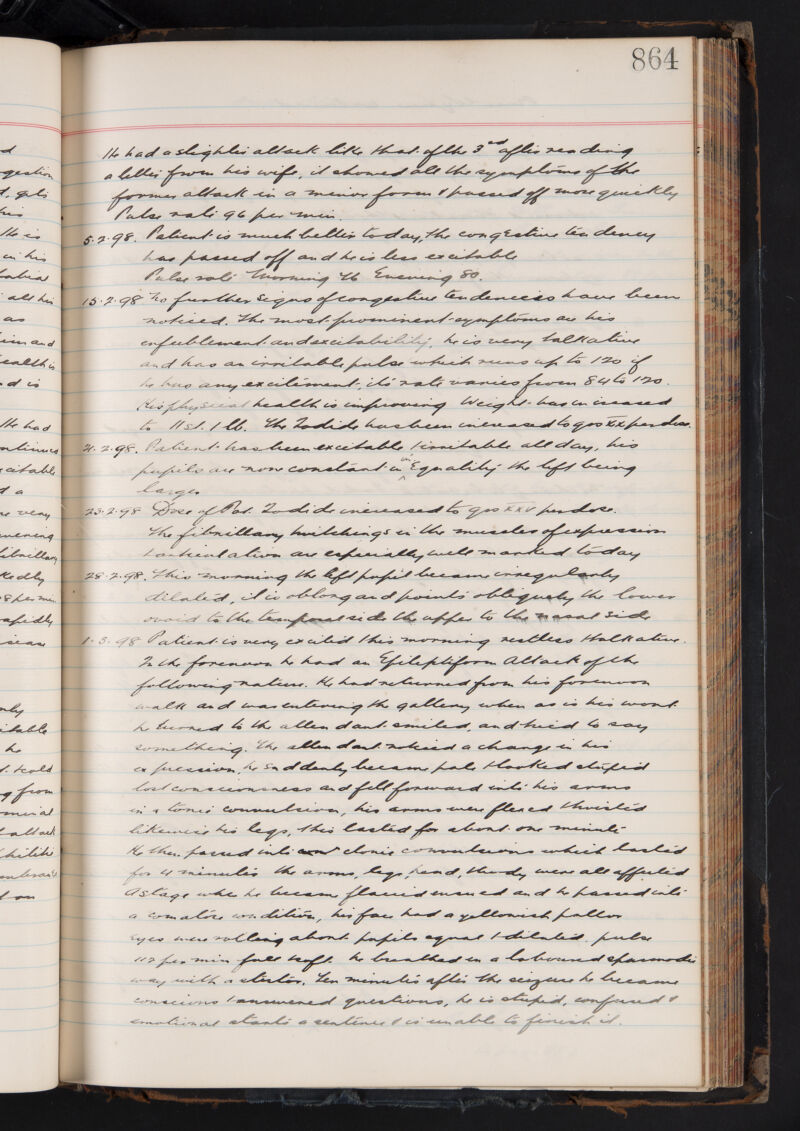 864
He had a slighter attack like that of the 3rd after reading
a letter from his wife, it showed all the symptoms of the
former attack in a minor form & passed off more quickly
Pulse rate 96 per min.
5.2.98. Patient is much better today, the congestive tendency
has passed off and he is less excitable
Pulse rate Morning 76 Evening 80.
15.2.98 No further signs of congestive tendencies have been
noticed. The most prominent symptoms are his
enfeeblement and excitability, he is very talkative
and has an irritable pulse which runs up to 120 if
he has any excitement, its rate varies from 84 to 120.
His physical health is improving Weight has increased
to 11 st. 1 lb. The Iodide has been increased to grs XX per dose.
21.2.98. Patient has been excitable & irritable all day, his
pupils are now constant in inEquality the left being
larger
23.2.98 Dose of Pot. Iodide increased to grs XXV per dose.
The fibrillary twitchings in the muscles of expression
& articulation are especially well marked today
28.2.98. This morning the left pupil became irregularly
dilated, it is oblong and points obliquely the lower
ovoid to the temporal side the upper to the nasal side
1.3.98 Patient is very excited this morning restless & talkative.
In the forenoon he had an Epileptiform Attack of the
following nature. He had returned from his forenoon
walk and was entering the gallery when as is his wont
he turned to the attendant smiled, and tried to say
something. The attendant noticed a change in his
expression, he suddenly became pale & looked stupid
lost consciousness and fell forward into his arms
in a tonic convulsion, his arms were flexed & twisted
likewise his legs, this lasted for about one minute
He then passed into clonic convulsions which lasted
for 4 minutes the arms, legs, head, & body were all affected
A stage when he became flaccid ensued and he passed into
a comatose condition, his face had a yellowish pallor
eyes were rolling about pupils equal & dilated. pulse
112 per min full & soft. he breathed in a laboured spasmodic
way with a stertor. Ten minutes after the seizure he became
conscious & answered questions, he is stupid, confused &
emotional starts a sentence & is unable to finish it.